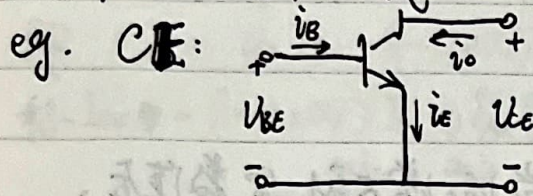 eg. CE:
iB
io
+ +
VBE iE VCE
- -